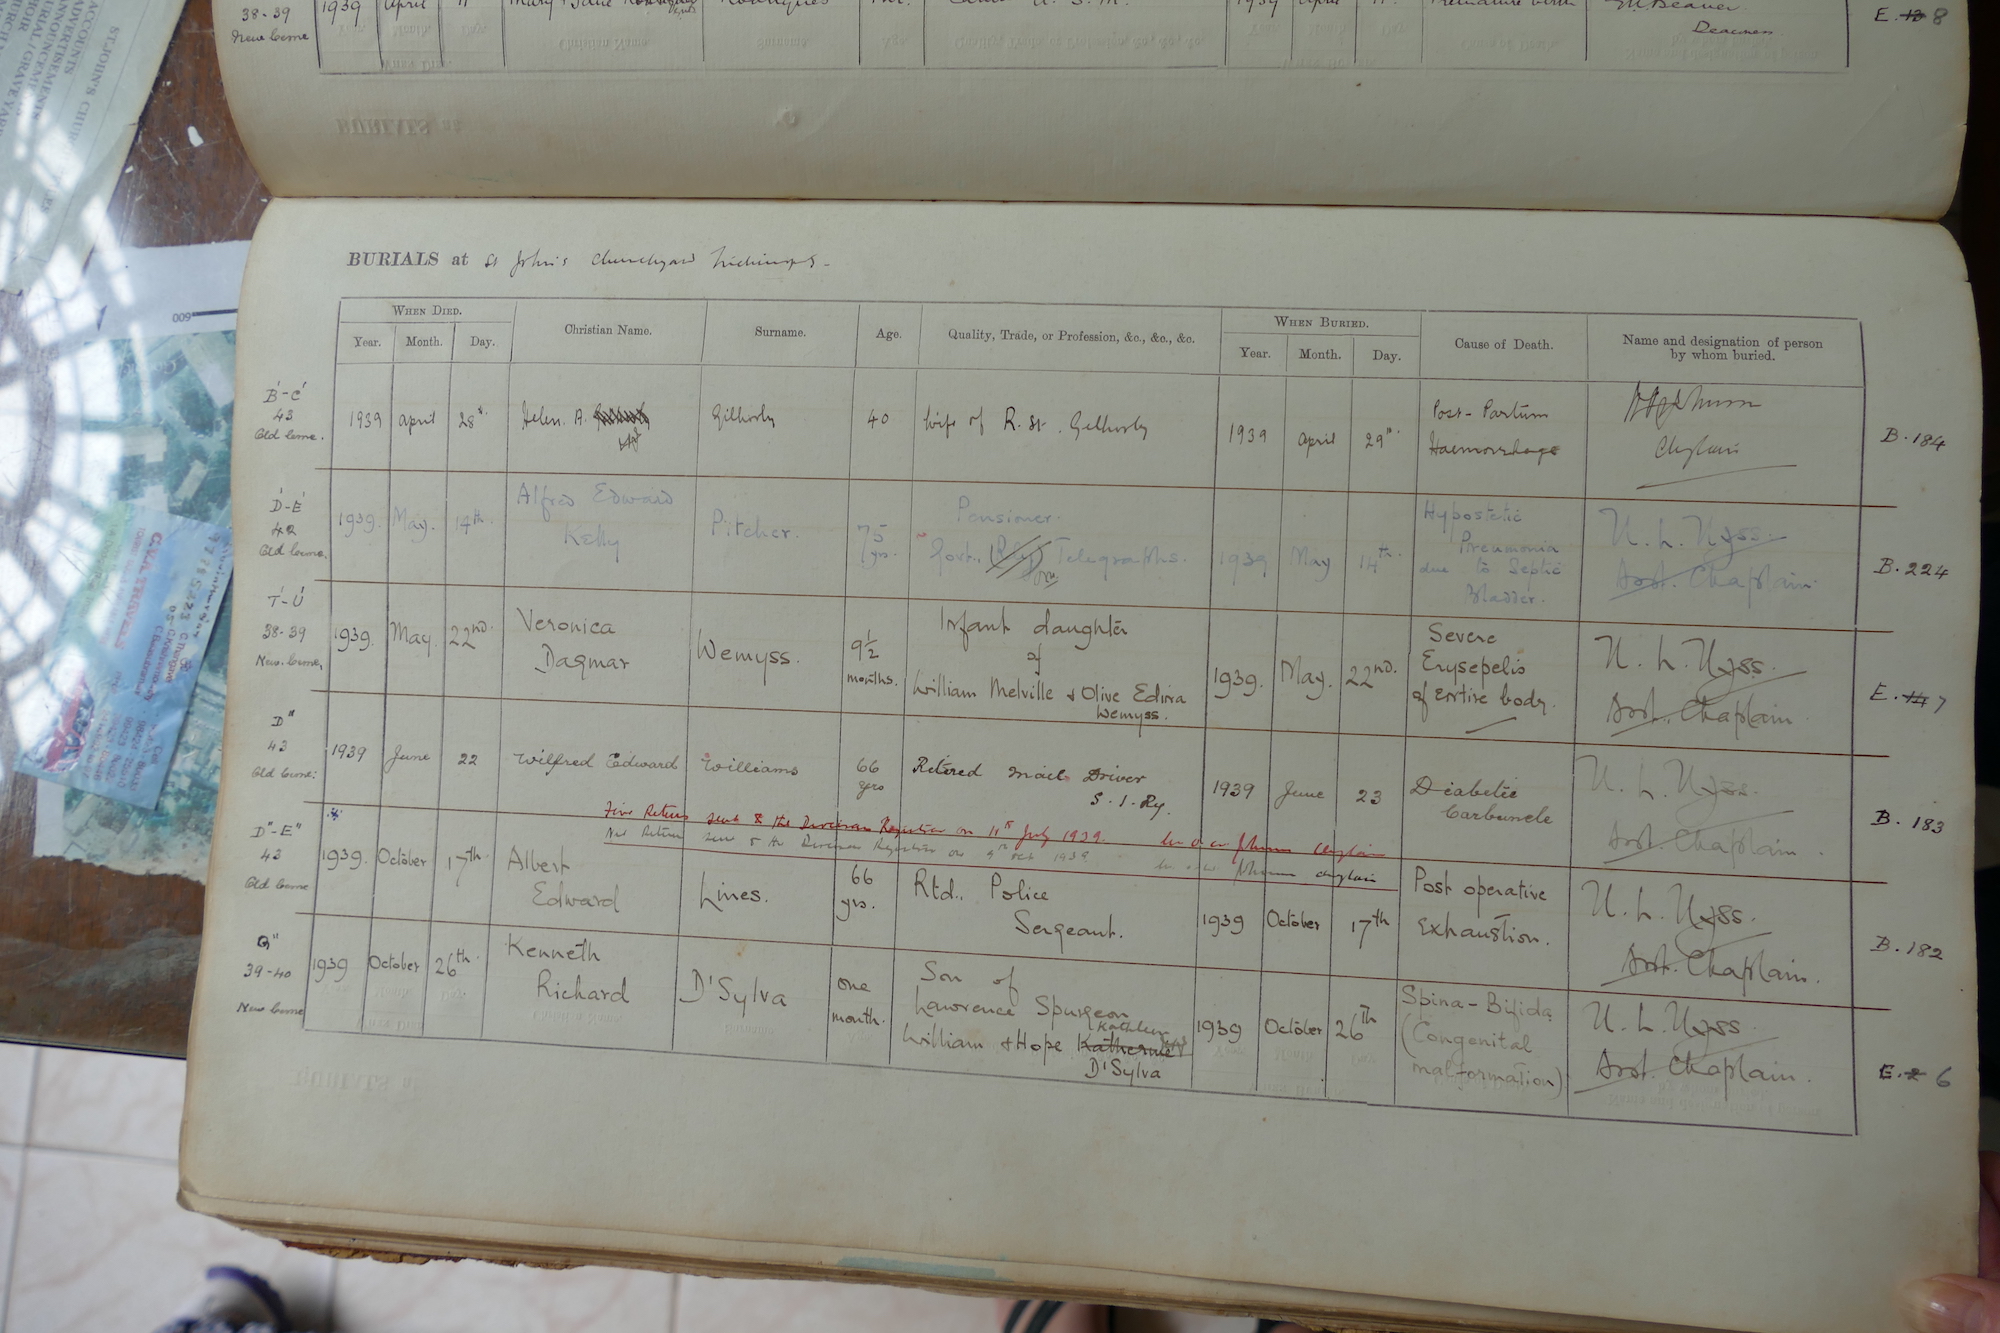 38-39
New Ceme
1939 April 11 Mary Rodrigues 1939 April Premature birth
Deaconess
E. 8
BURIALS at St John's Churchyard Trichinopoly
WHEN DIED.
Year. Month. Day.
Christian Name.
Surname.
Age.
Quality, Trade, or Profession, &c., &c., &c.
WHEN BURIED.
Year. Month. Day.
Cause of Death.
Name and designation of person
by whom buried.
B'-C'
43
Old Ceme.
1939 April 28th. Helen. A. Gilhorly 40 Wife of R. St. Gilhorly 1939 April 29th. Post-Partum
Haemorrhage
Chaplain
B. 184
D'-E'
42
Old Ceme.
1939. May. 14th. Alfred Edward
Kelly
Pitcher.
75
yrs.
Pensioner.
Govt. (Rly) Telegraphs.
1939 May 14th.
Hypostatic
Pneumonia
due to Septic
Bladder.
N. L. Nyss.
Asst. Chaplain.
B. 224
T'-U'
38-39
New Ceme.
1939. May. 22nd. Veronica
Dagmar
Wemyss.
9½
months.
Infant daughter
of
William Melville & Olive Edina
Wemyss.
1939. May. 22nd.
Severe
Erysepelis
of entire body.
N. L. Nyss.
Asst. Chaplain.
E. 14 7
D"
43
Old Ceme:
1939 June 22 Wilfred Edward Williams 66
yrs
Retired Mail Driver
S. I. Ry.
1939 June 23
Diabetic
Carbuncle
N. L. Nyss.
Asst. Chaplain.
B. 183
Five Returns sent to the Division Registrar on 11th July 1939. Chaplain
Nil Return sent to the Division Registrar on 9th Oct 1939 Chaplain
D"-E"
43
Old Ceme
1939. October 17th. Albert
Edward
Lines.
66
yrs.
Rtd. Police
Sergeant.
1939 October 17th
Post operative
Exhaustion.
N. L. Nyss.
Asst. Chaplain.
B. 182
G"
39-40
New Ceme
1939 October 26th. Kenneth
Richard
D'Sylva
one
month.
Son of
Lawrence Spurgeon
Kathleen
William & Hope Katherine
D'Sylva
1939 October 26th
Spina-Bifida
(Congenital
malformation)
N. L. Nyss.
Asst. Chaplain.
E. 2 6
ST. JOHN'S CHURCH
ACCOUNTS
ADVERTISEMENTS
ANNOUNCEMENTS
BURIAL/GRAVEYARD
600